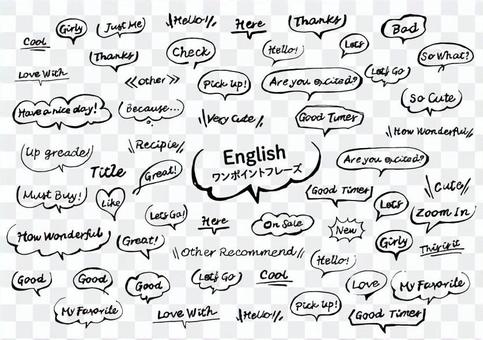 Cool
Girly
Just Me
Hello!!
Here
Thanks
Bad
Thanks
Check
Hello!
Lets
So What?
Love With
other
Pick Up!
Are you excited?
Let's Go
Have a nice day!
Because...
Very Cute
Good Times
So Cute
How Wonderful
Up grade
Title
Recipie
Great!
English
ワンポイントフレーズ
Are you excited?
Must Buy!
Like
Good Times
Cute
Let's Go!
Here
On Sale
Lets
Zoom In
How Wonderful
Great!
Other Recommend
New
Girly
This is it
Hello!
Good
Good
Good
Let's Go
Cool
Love
My Favorite
My Favorite
Love With
Hello!!
Pick Up!
Good Times